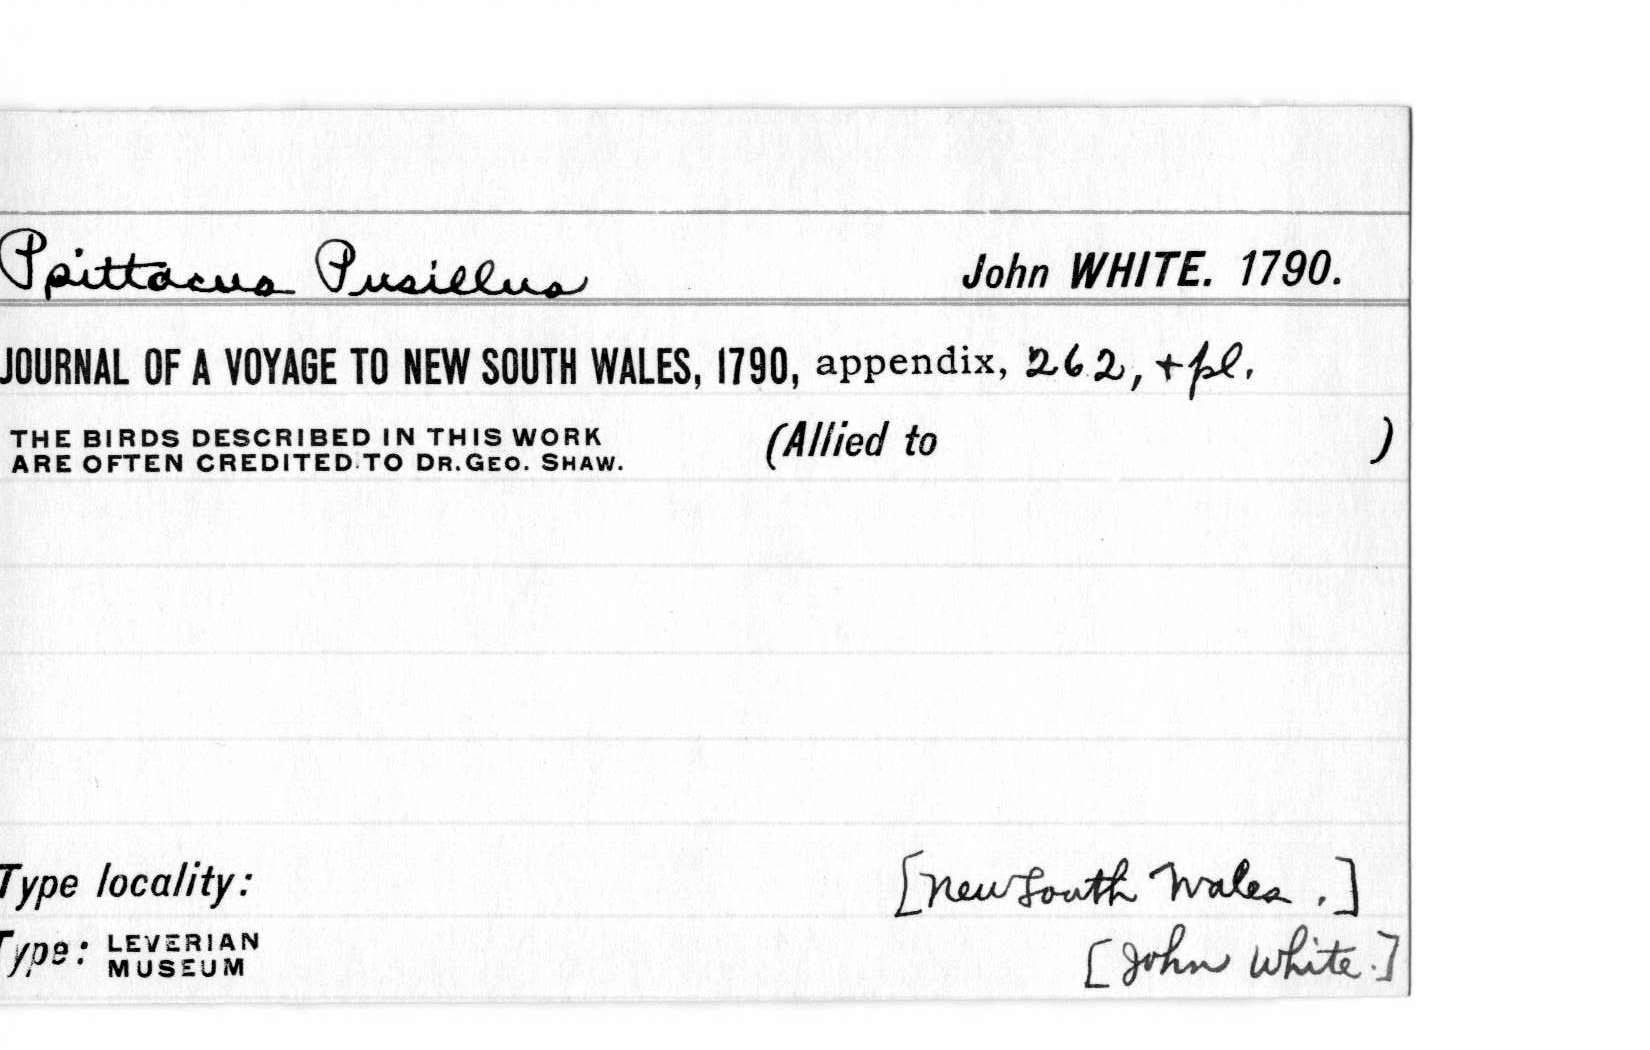 Psittacus Pusillus John WHITE. 1790.
JOURNAL OF A VOYAGE TO NEW SOUTH WALES, 1790, appendix, 262, + pl.
THE BIRDS DESCRIBED IN THIS WORK
ARE OFTEN CREDITED TO DR. GEO. SHAW.
(Allied to )
Type locality: [New South Wales.]
Type: LEVERIAN MUSEUM [John White.]